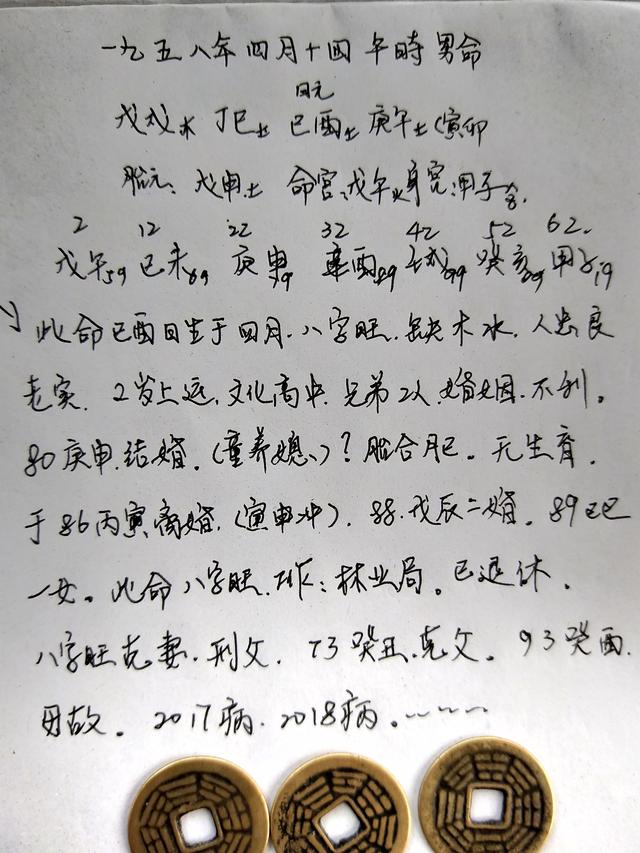 一九五八年四月十四 午時 男命
日元
戊戌木 丁巳土 己酉土 庚午土 寅卯
胎元:戊申土 命宫:戊午火 身宫:甲子金.
2 12 22 32 42 52 62.
戊午59 己未69 庚申79 辛酉89 壬戌99 癸亥09 甲子19
此命己酉日生于四月.八字旺.缺木水.人忠良
老实. 2岁上运.文化高中.兄弟2人.婚姻.不利。
80庚申.结婚.(童养媳、)?胎合月巳。无生育.
于86丙寅离婚.(寅申冲). 88.戊辰二婚. 89己巳
一女。此命八字旺.工作:林业局。已退休.
八字旺克妻.刑父. 73癸丑.克父。93癸酉.
母故。2017病.2018病。